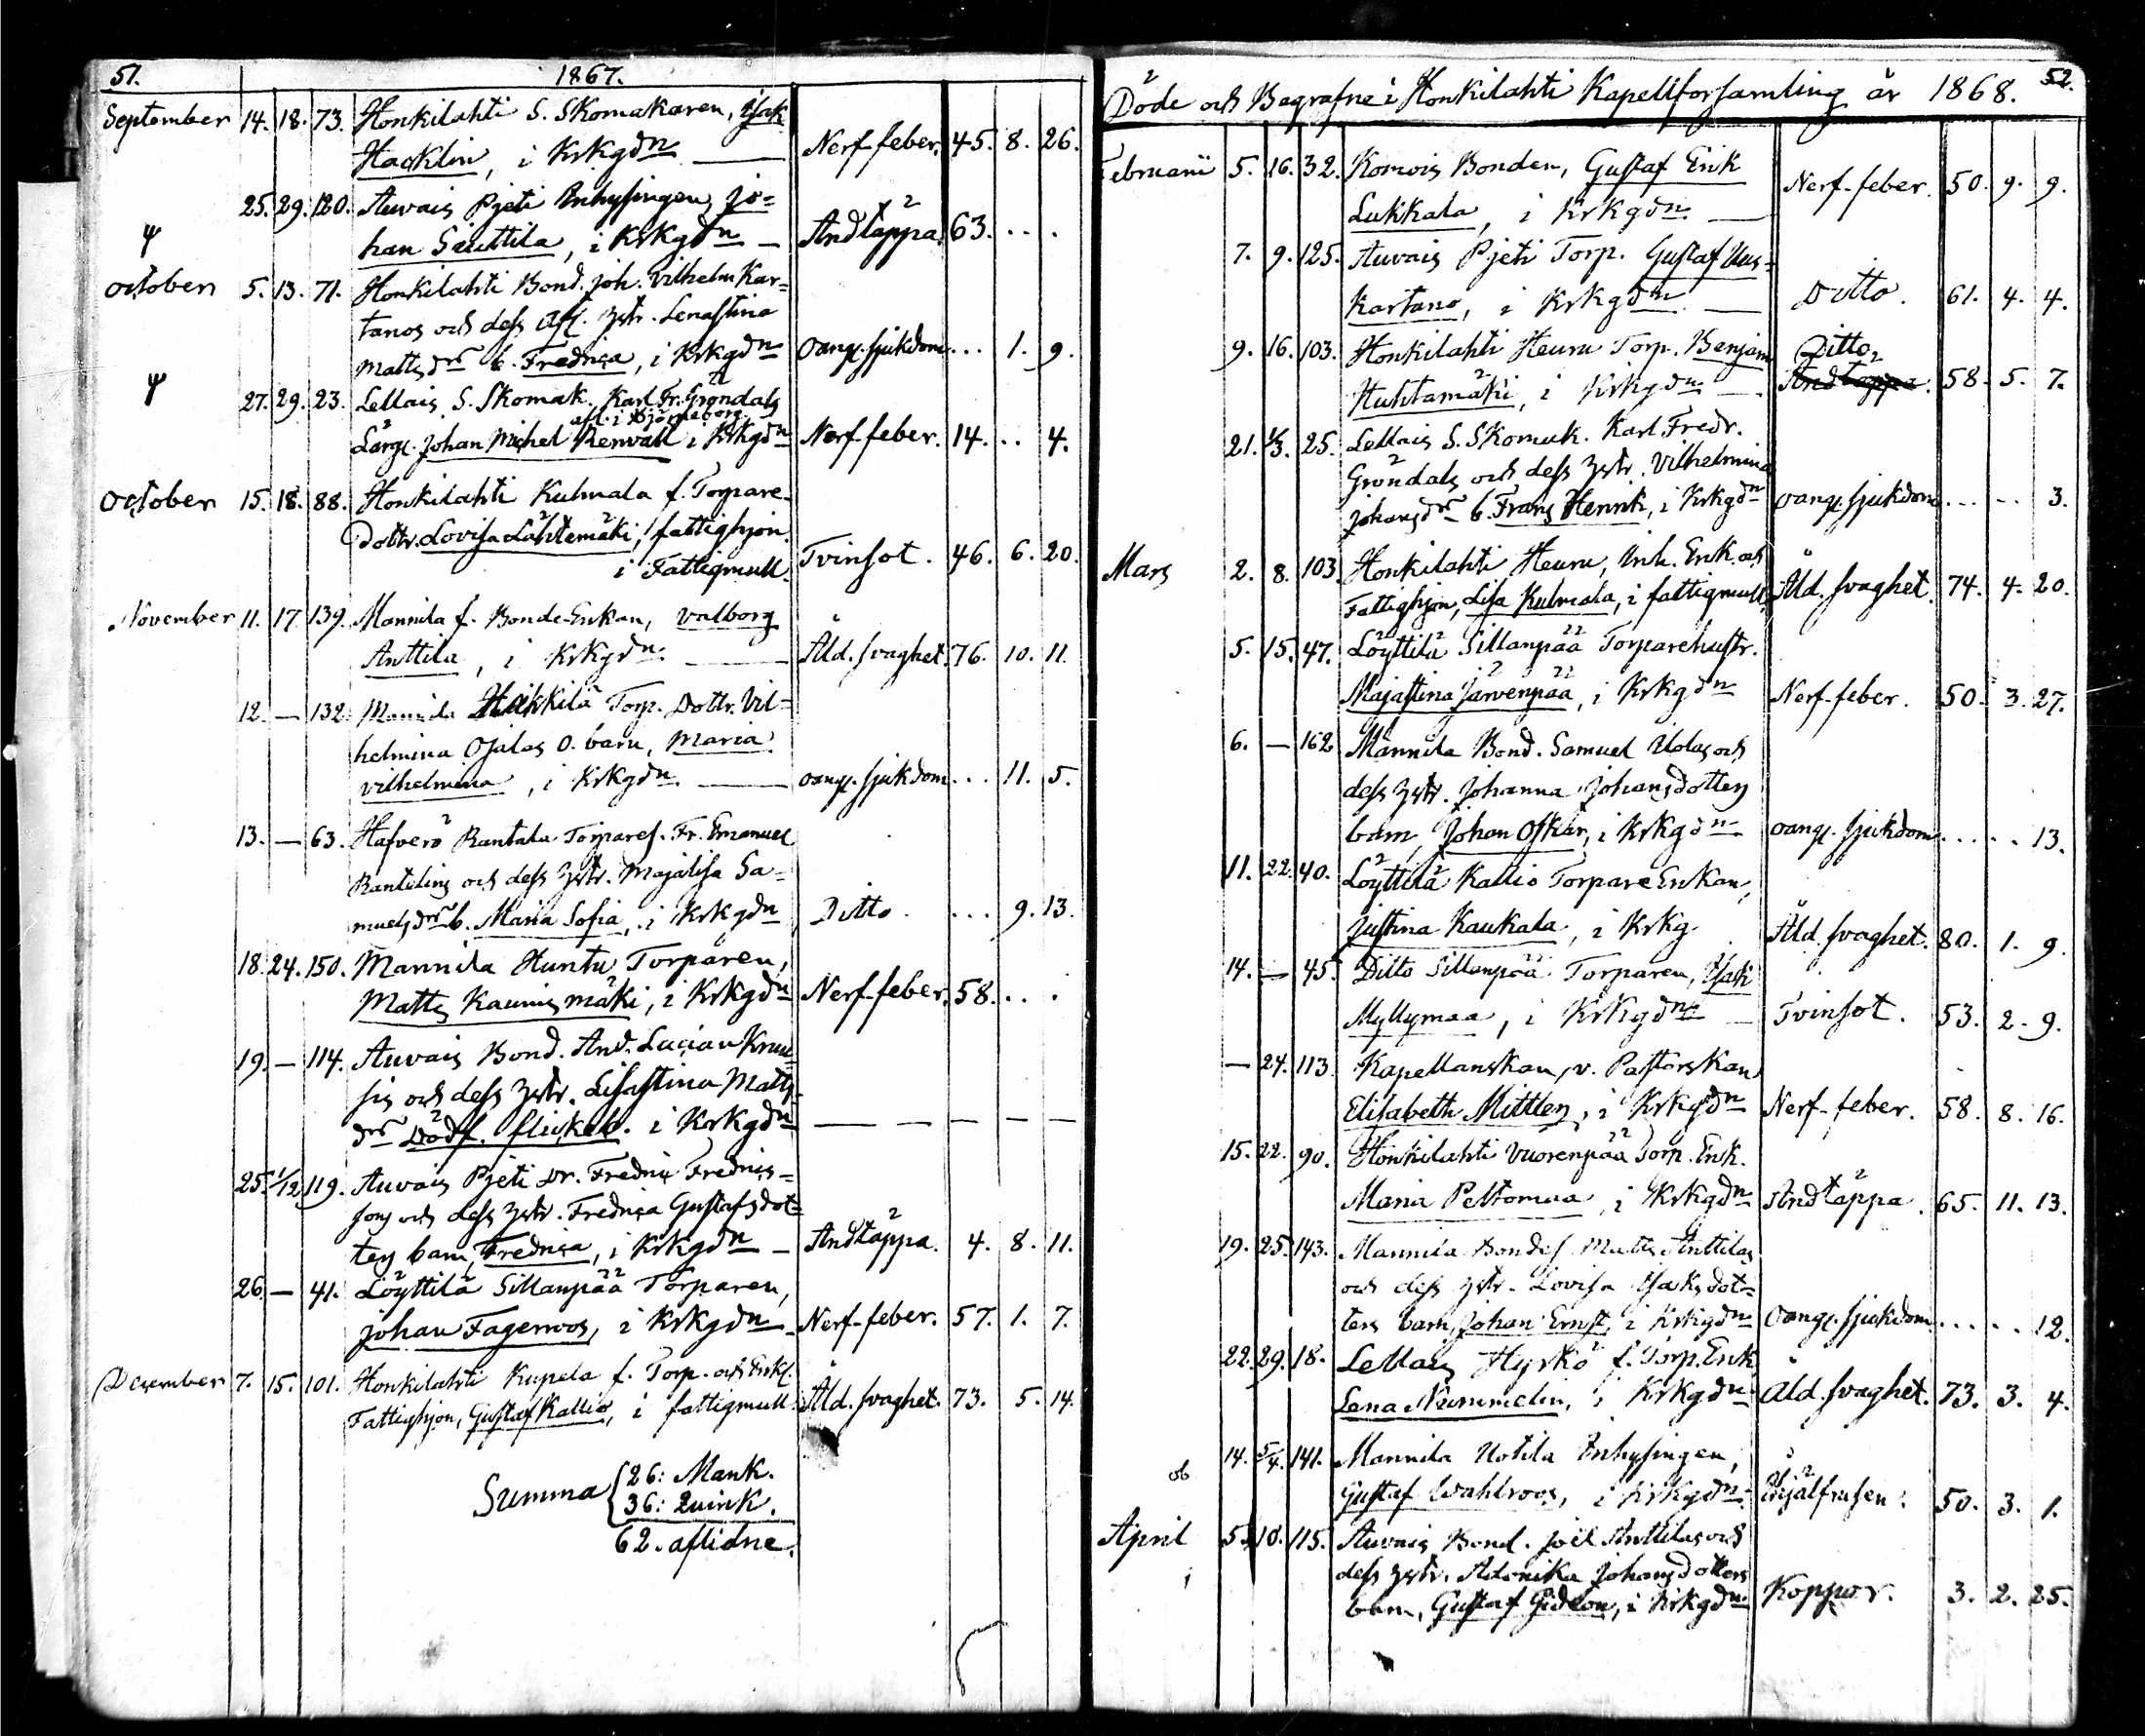 51.
1867.
September 14. 18. 73. Honkilahti S. Skomakaren, Isak
Hacklin, i Krkgdn — Nerf-feber. 45. 8. 26.
25. 29. 120. Auvais Pjeti Inhysingen, Jo=
han Säuttilä, i Krkgdn — Andtäppa. 63. . . .
October 5. 13. 71. Honkilahti Bond. Joh. Vilhelm Kar=
tanos och dess afl. hstr. Lenastina
Mattsdrs b. Fredrica, i Krkgdn oangf. sjukdom. . . 1. 9.
27. 29. 23. Lellais S. Skomak. Karl Fr. Gröndals
afl. i Björneborg
Lärgl. Johan Michel Renvall i Krkgdn Nerf feber. 14. . . 4.
October 15. 18. 88. Honkilahti Kulmala f. Torpare
Dottr. Lovisa Lähtemäki, fattighjon.
i Fattigmull. Tvinsot. 46. 6. 20.
November 11. 17. 139. Mannila f. Bonde-Enkan, Valborg
Anttila, i Krkgdn — Åld. svaghet. 76. 10. 11.
12. — 132. Mannila Heikkilä Torp. Dottr. Vil=
helmina Ojalas o. barn, Maria
Vilhelmina, i Krkgdn — oangf. sjukdom. . . 11. 5.
13. — 63. Hafverö Rantala Torpares. Fr. Emanuel
Rantelins och dess hstr. Majalisa Sa=
muelsdrs b. Maria Sofia, i Krkgdn Ditto. . . . 9. 13.
18. 24. 150. Mannila Huntu Torparen,
Matts Kaunismäki, i Krkgdn Nerf-feber. 58. . . .
19. — 114. Auvais Bond. And. Lucian Knuu=
sis och dess hstr. Lisastina Matts=
drs Dödf. flickeb. i Krkgdn — — — — —
25. 1/12 119. Auvais Pjeti Dr. Fredric Fredrics=
sons och dess hstr. Fredrica Gustafsdot=
ters barn, Fredrica, i Krkgdn — Andtäppa. 4. 8. 11.
26. — 41. Löyttilä Sillanpää Torparen,
Johan Fagerroos, i Krkgdn — Nerf-feber. 57. 1. 7.
December 7. 15. 101. Honkilahti Kupela f. Torp. och Enkl.
Fattighjon, Gustaf Kallio, i fattigmull Åld. svaghet. 73. 5. 14.
Summa { 26: Mank.
36: Quink.
62. aflidne.
52.
Döde och Begrafne i Honkilahti Kapellförsamling år 1868.
Februarii 5. 16. 32. Korvois Bonden, Gustaf Erik
Lukkala, i Krkgdn — Nerf-feber. 50. 9. 9.
7. 9. 125. Auvais Pjeti Torp. Gustaf Uus=
kartano, i Krkgdn — Ditto. 61. 4. 4.
9. 16. 103. Honkilahti Heuru Torp. Benjam Ditto,
Huhtamäki, i Krkgdn — Andtäppa. 58. 5. 7.
21. 1/3. 25. Lellais S. Skomak. Karl Fredr.
Gröndals och dess hstr. Vilhelmina
Johansdrs b. Frans Henrik, i Krkgdn oangf. sjukdom. . . . . 3.
Mars 2. 8. 103. Honkilahti Heuru, Inh. Enk. och
Fattighjon, Lisa Kulmala, i fattigmull, Åld. svaghet. 74. 4. 20.
5. 15. 47. Löyttilä Sillanpää Torparehustr.
Majastina Järvenpää, i Krkgdn Nerf-feber. 50. 3. 27.
6. — 162. Mannila Bond. Samuel Uolas och
dess hstr. Johanna Johansdotters
barn, Johan Oskar, i Krkgdn oangf. sjukdom. . . . . 13.
11. 22. 40. Löyttilä Kallio Torpare Enkan,
Justina Kaukala, i Krkg Åld. svaghet. 80. 1. 9.
14. — 45. Ditto Sillanpää Torparen, Isak
Myllymaa, i Krkgdn — Tvinsot. 53. 2. 9.
— 24. 113. Kapellanskan, v. Pastorskan
Elisabeth Mittler, i Krkgdn Nerf-feber. 58. 8. 16.
15. 22. 90. Honkilahti Vuorenpää Torp. Enk.
Maria Peltomaa, i Krkgdn Andtäppa. 65. 11. 13.
19. 25. 143. Mannila Bondes. Matts Anttilas
och dess hstr. Lovisa Isaksdot=
ters barn, Johan Ernst, i Krkgdn Oangf. sjukdom. . . . . 12.
22. 29. 18. Lellais Hyrkö f. Torp. Enk
Lena Nummelin, i Krkgdn Åld. svaghet. 73. 3. 4.
14. 5/4. 141. Mannila Uotila Inhysingen,
Gustaf Wahlroos, i Krkgdn ihjälfrusen. 50. 3. 1.
April 5. 10. 115. Auvais Bond. Joel Anttilas och
dess hstr. Adonika Johansdotters
barn, Gustaf Gideon, i Krkgdn Koppor. 3. 2. 25.